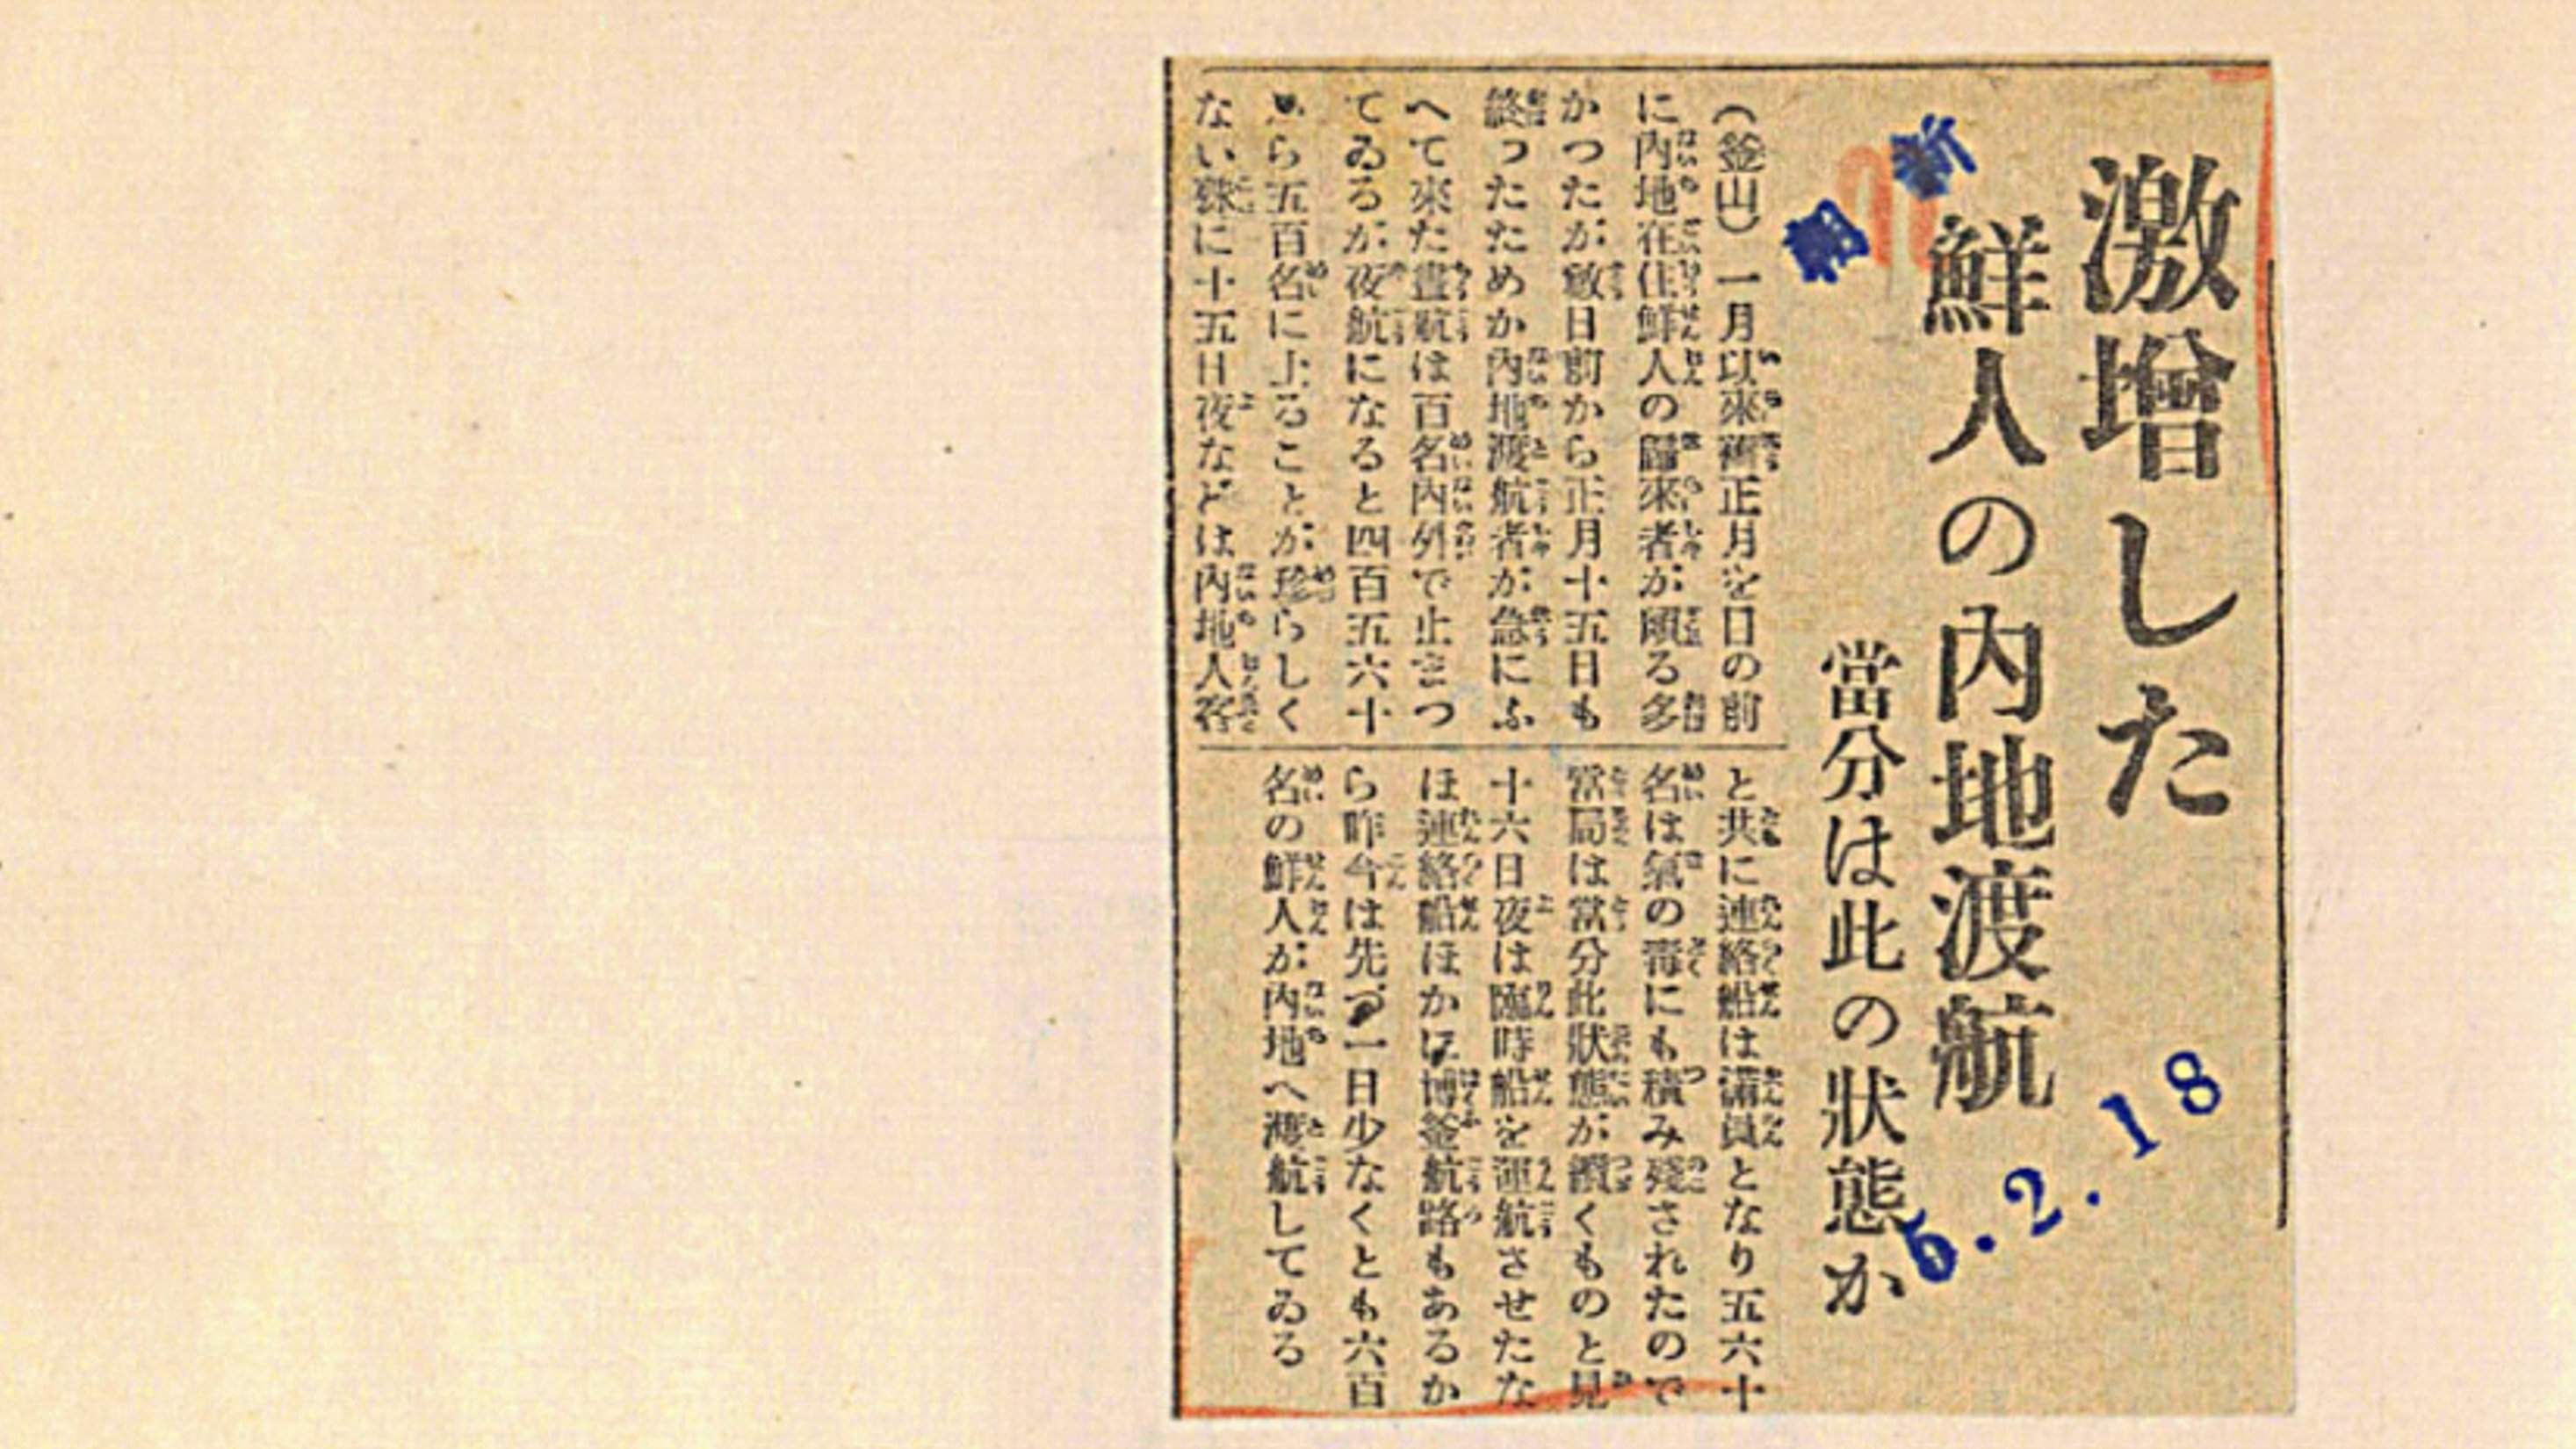 激增した
鮮人の內地渡航
當分は此の狀態か
（釜山）一月以來舊正月を目の前
に內地在住鮮人の歸來者が頗る多
かつたが數日前から正月十五日も
終つたためか內地渡航者が急にふ
へて來た晝航は百名內外で止まつ
てゐるが夜航になると四百五六十
から五百名に上ることが珍らしく
ない殊に十五日夜などは內地人客
と共に連絡船は滿員となり五六十
名は氣の毒にも積み殘されたので
當局は當分此狀態が續くものと見
十六日夜は臨時船を運航させたな
ほ連絡船ほかに博釜航路もあるか
ら昨今は先づ一日少なくとも六百
名の鮮人が內地へ渡航してゐる
6.2.18